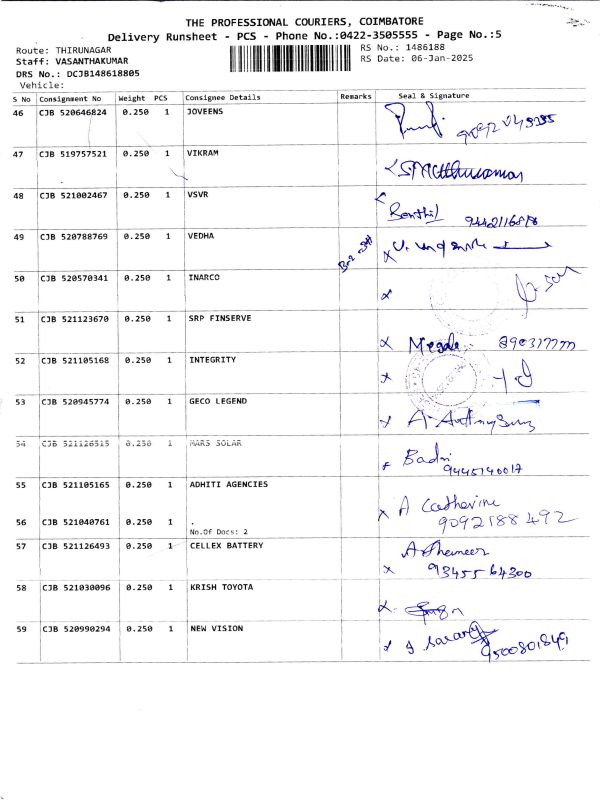 THE PROFESSIONAL COURIERS, COIMBATORE
Delivery Runsheet - PCS - Phone No.:0422-3505555 - Page No.:5
Route: THIRUNAGAR RS No.: 1486188
Staff: VASANTHAKUMAR RS Date: 06-Jan-2025
DRS No.: DCJB148618805
Vehicle:
S No Consignment No Weight PCS Consignee Details Remarks Seal & Signature
46 CJB 520646824 0.250 1 JOVEENS
47 CJB 519757521 0.250 1 VIKRAM
48 CJB 521002467 0.250 1 VSVR
Senthil
49 CJB 520788769 0.250 1 VEDHA
50 CJB 520570341 0.250 1 INARCO
51 CJB 521123670 0.250 1 SRP FINSERVE
52 CJB 521105168 0.250 1 INTEGRITY
53 CJB 520945774 0.250 1 GECO LEGEND
54 CJB 521126515 0.250 1 MARS SOLAR
Badri
9445140017
55 CJB 521105165 0.250 1 ADHITI AGENCIES
A Catherine
9092188492
56 CJB 521040761 0.250 1 .
No.Of Docs: 2
57 CJB 521126493 0.250 1 CELLEX BATTERY
9345564300
58 CJB 521030096 0.250 1 KRISH TOYOTA
59 CJB 520990294 0.250 1 NEW VISION
9500801849